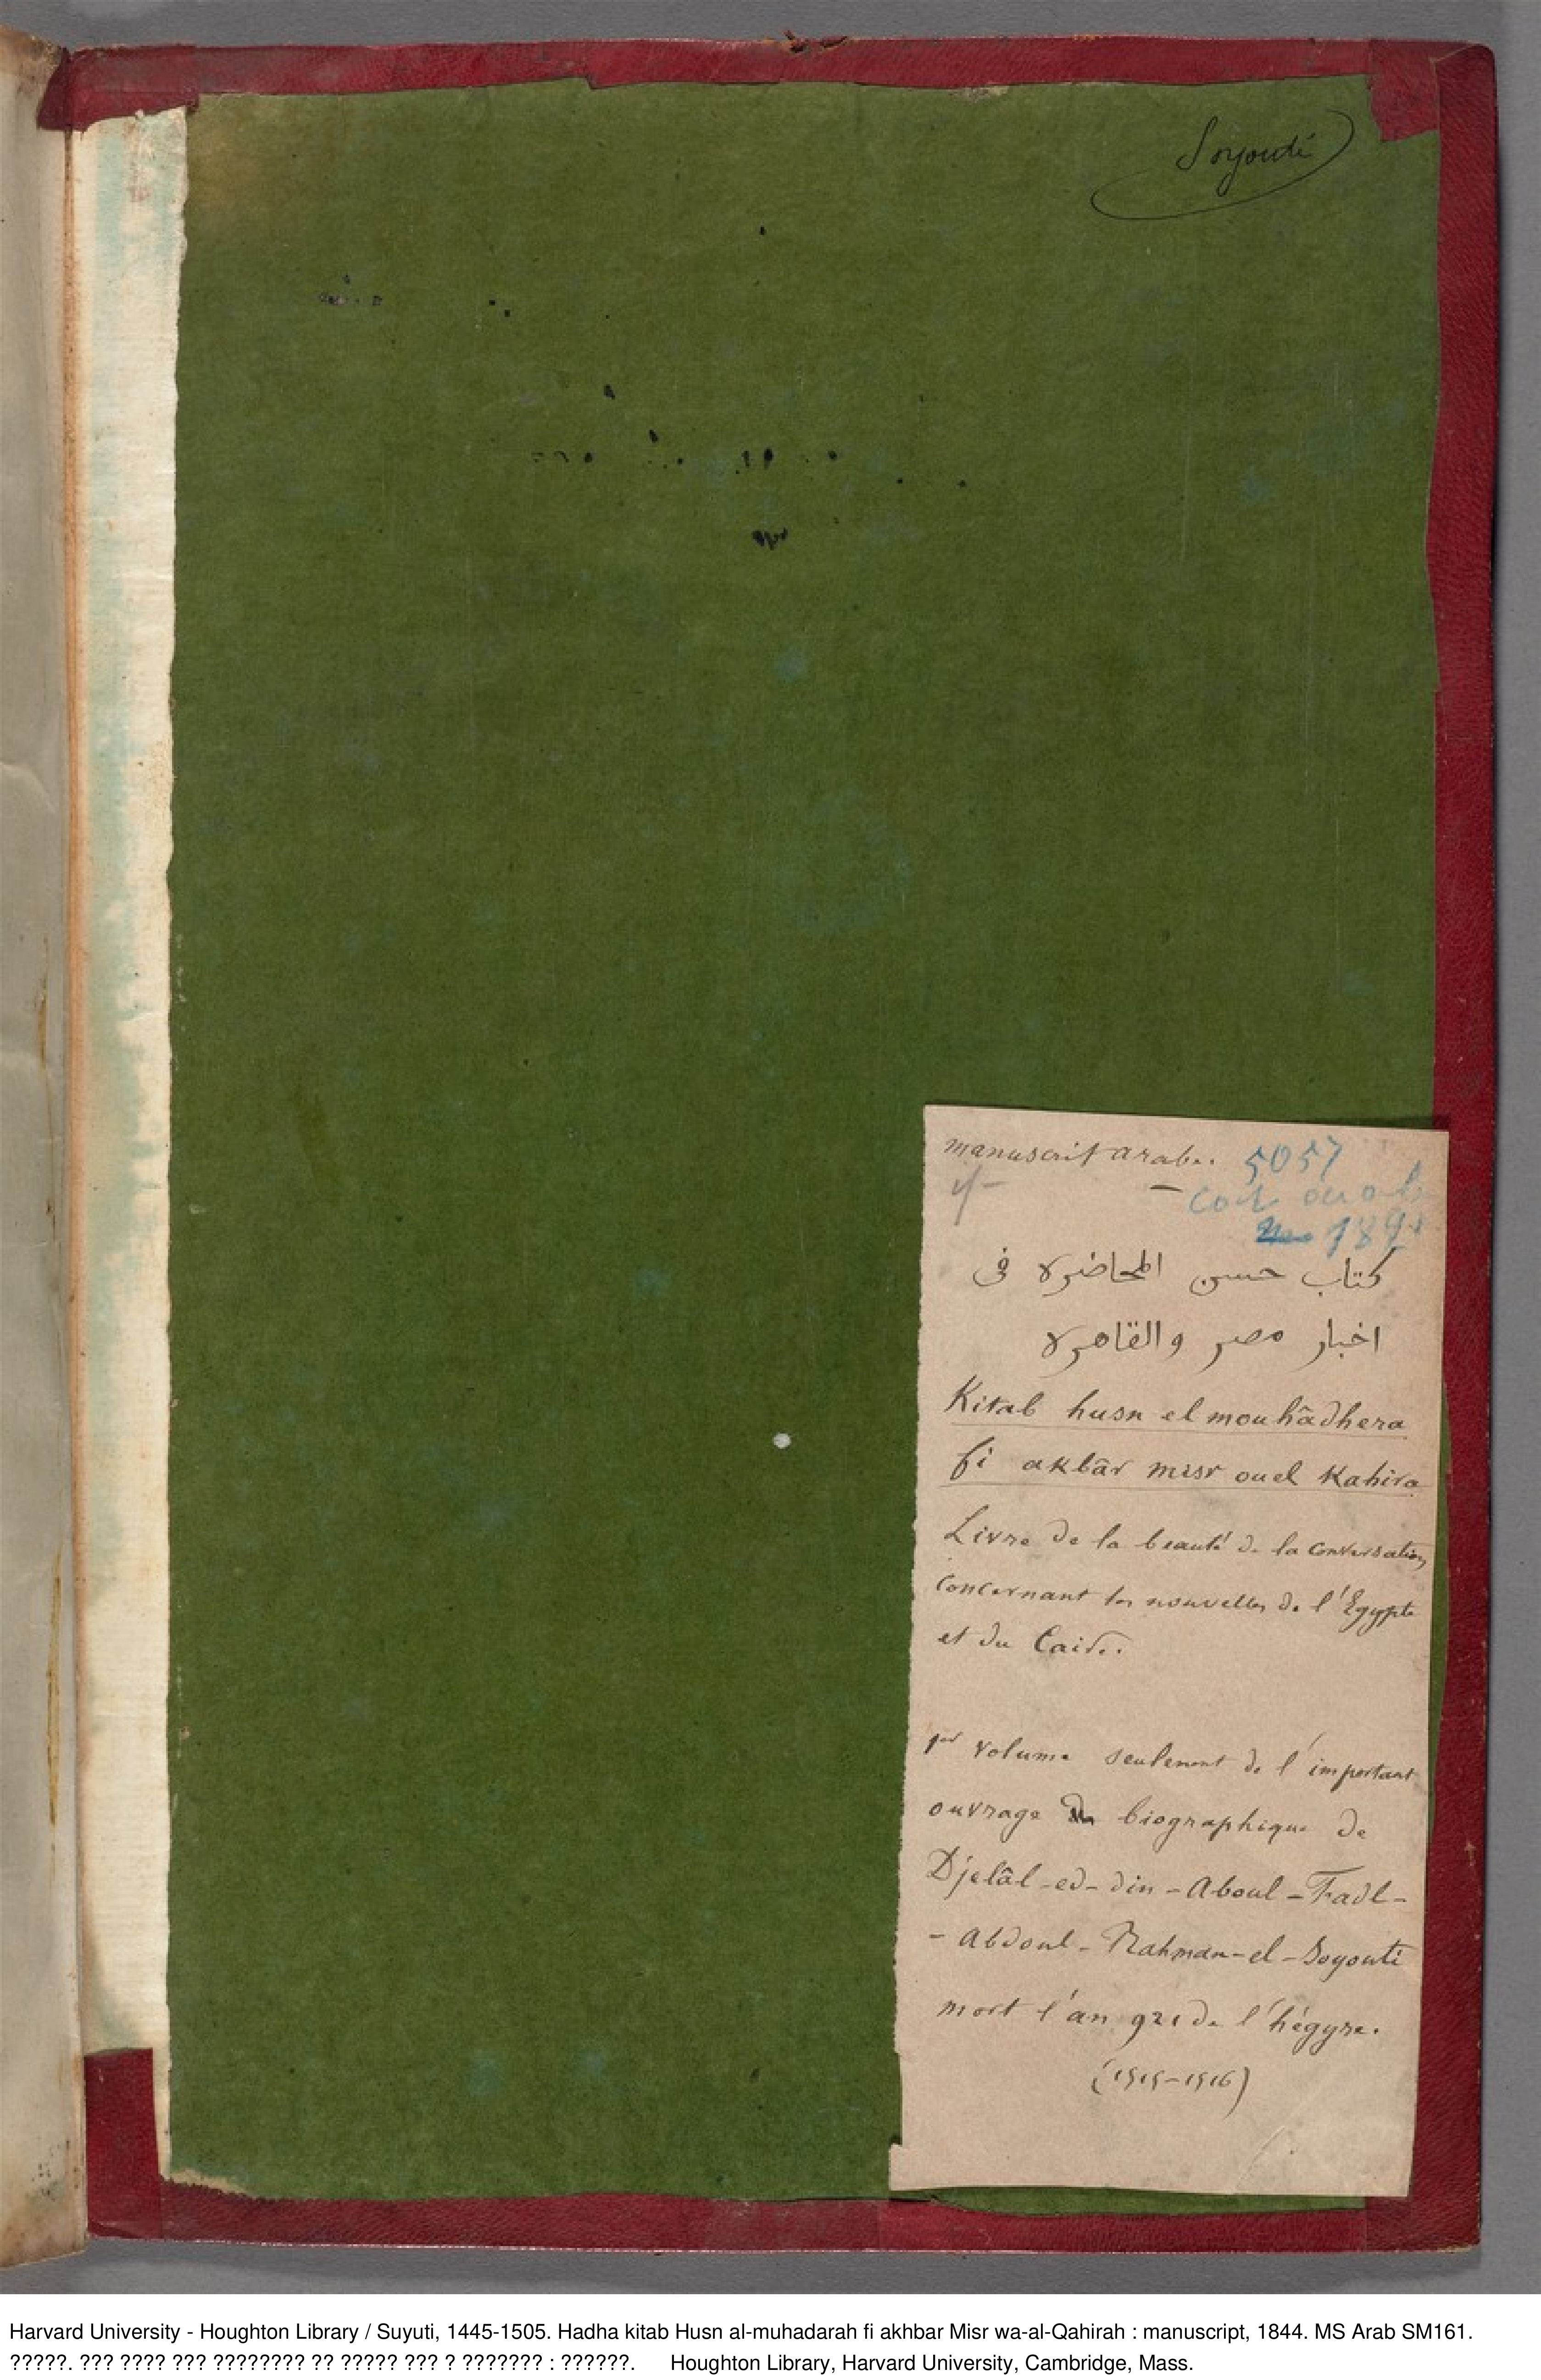 Soyouti
manuscrit arabe.
5057
كتاب حسن المحاضرة فى
اخبار مصر والقاهرة
Kitab husn el mouhâdhera
fi akbâr misr ouel Kahira
Livre de la beauté de la conversation
concernant les nouvelles de l'Egypte
et du Caire.
1er volume seulement de l'important
ouvrage biographique de
Djelâl-ed-din-Aboul-Fadl-
-Abdoul-Rahman-el-Soyouti
mort l'an 921 de l'hégyre.
(1515-1516)
Harvard University - Houghton Library / Suyuti, 1445-1505. Hadha kitab Husn al-muhadarah fi akhbar Misr wa-al-Qahirah : manuscript, 1844. MS Arab SM161.
?????. ??? ???? ??? ???????? ?? ????? ??? ? ??????? : ??????. Houghton Library, Harvard University, Cambridge, Mass.